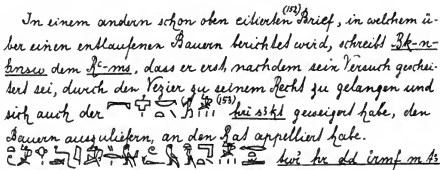 In einem andern schon oben citierten (152) Brief, in welchem ü-
ber einen entlaufenen Bauern berichtet wird, schreibt Bk-n-
ḫnsw dem Rʿ-ms, dass er erst, nachdem sein Versuch geschei-
tert sei, durch den Vezier zu seinem Recht zu gelangen und
sich auch der (153) ḥri sꜣkt geweigert habe, den
Bauern auszuliefern, an den Rat appelliert habe.
twi ḥr dd irmf m tꜣ